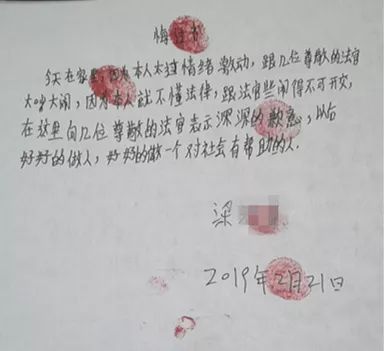 悔过书
今天在家里,因为本人太过情绪激动,跟几位尊敬的法官
大吵大闹,因为本人就不懂法律,跟法官些闹得不可开交,
在这里向几位尊敬的法官表示深深的歉意,以后
好好的做人,好好的做一个对社会有帮助的人.
梁
2019年2月21日